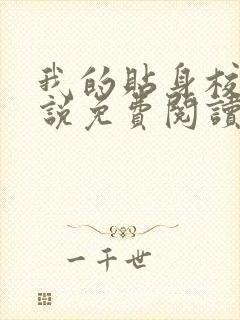 我的貼身校
說免費閱讀
一千世